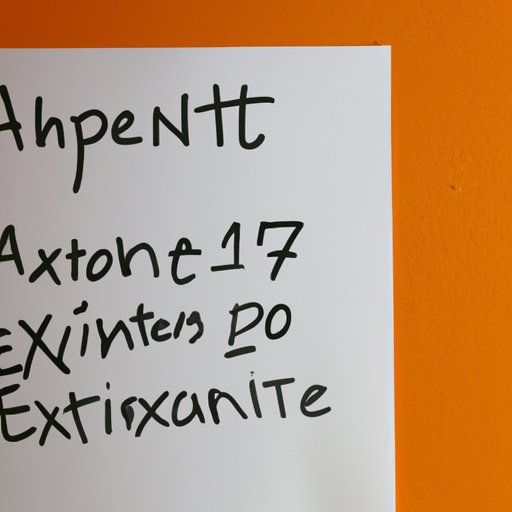 AhpeNtt
Axtonet 17
EXiinters po
ExtisxaniTe